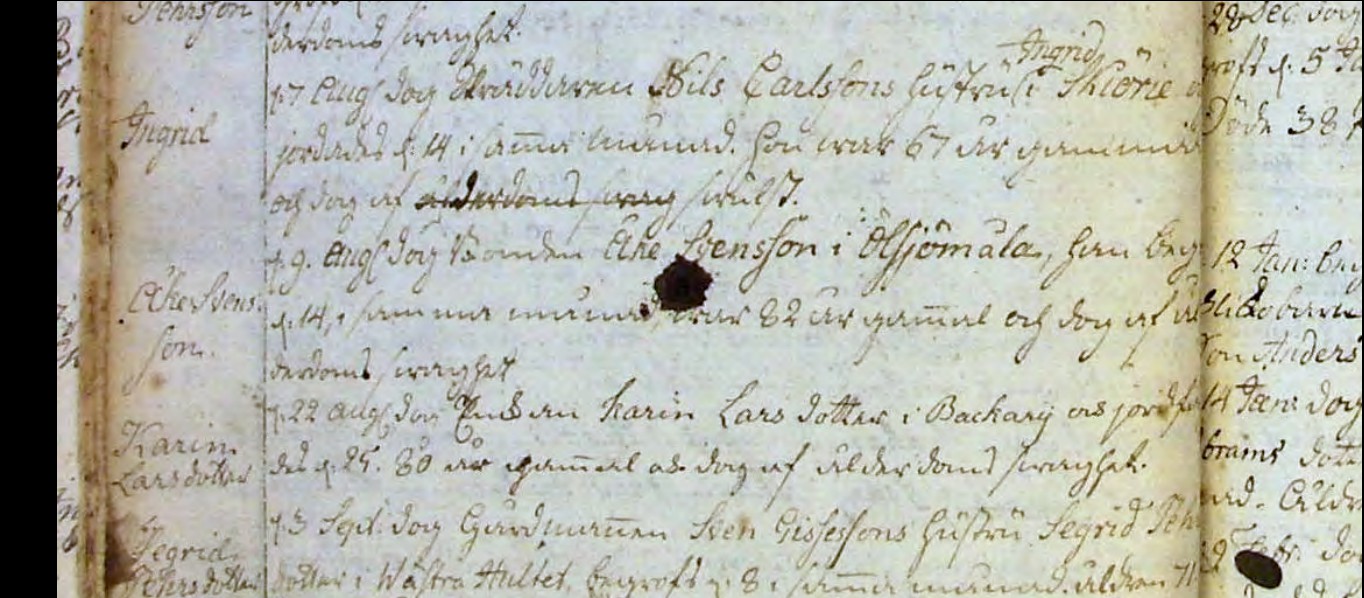 Pehrsson
derdoms swaghet.
Ingrid
d. 7 Aug dog Skräddaren Nils Carlssons hustru i Skiörie
Ingrid
jordades d. 14 i samma månad. hon war 67 år gammal
och dog af ålderdoms swag swulst.
d. 9. Aug dog Bonden Åke Svensson i Ölsjömåla, han beg
Åke Svens
son.
d. 14, i samma månad, war 82 år gammal och dog af ål
derdoms swaghet
d. 22 Aug dog Enkan Karin Lars dotter i Backary os jordfä
Karin
Larsdotter
des d. 25. 80 år gammal os dog af ålderdoms swaghet.
d. 3 Sept. dog Gårdmannen Sven Gissessons hustru Segrid Pehr
Segrid
Pehrsdotter
dotter i Wästra Hultet, begrofs d. 8 i samma månad. ålder 71
28 Dec. dog
grofs d. 5
Döde 38
12 Jan: beg
son Anders
14 Jan: dog
brams dott
Febr: do